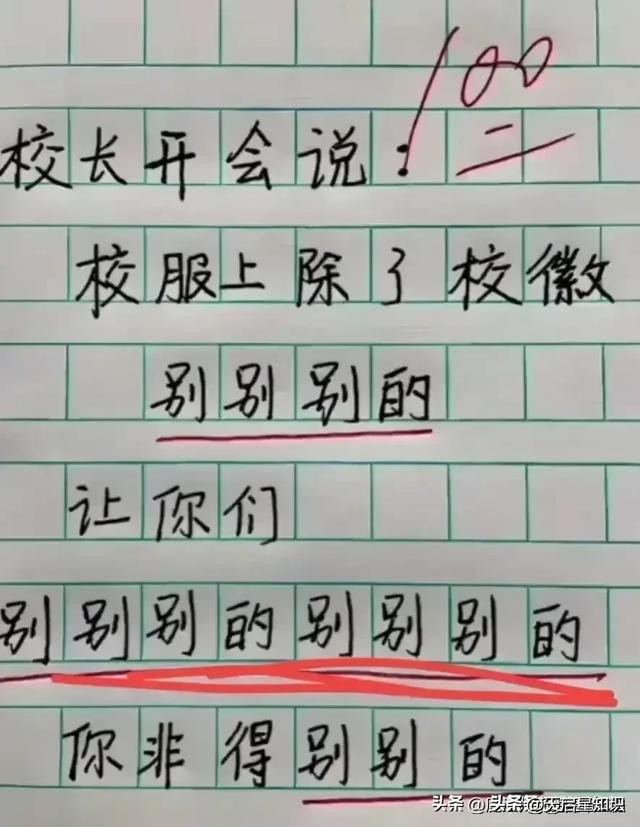 100
校长开会说:
校服上除了校徽
别别别的
让你们
别别别的别别别的
你非得别别的
头条 @天启星知识